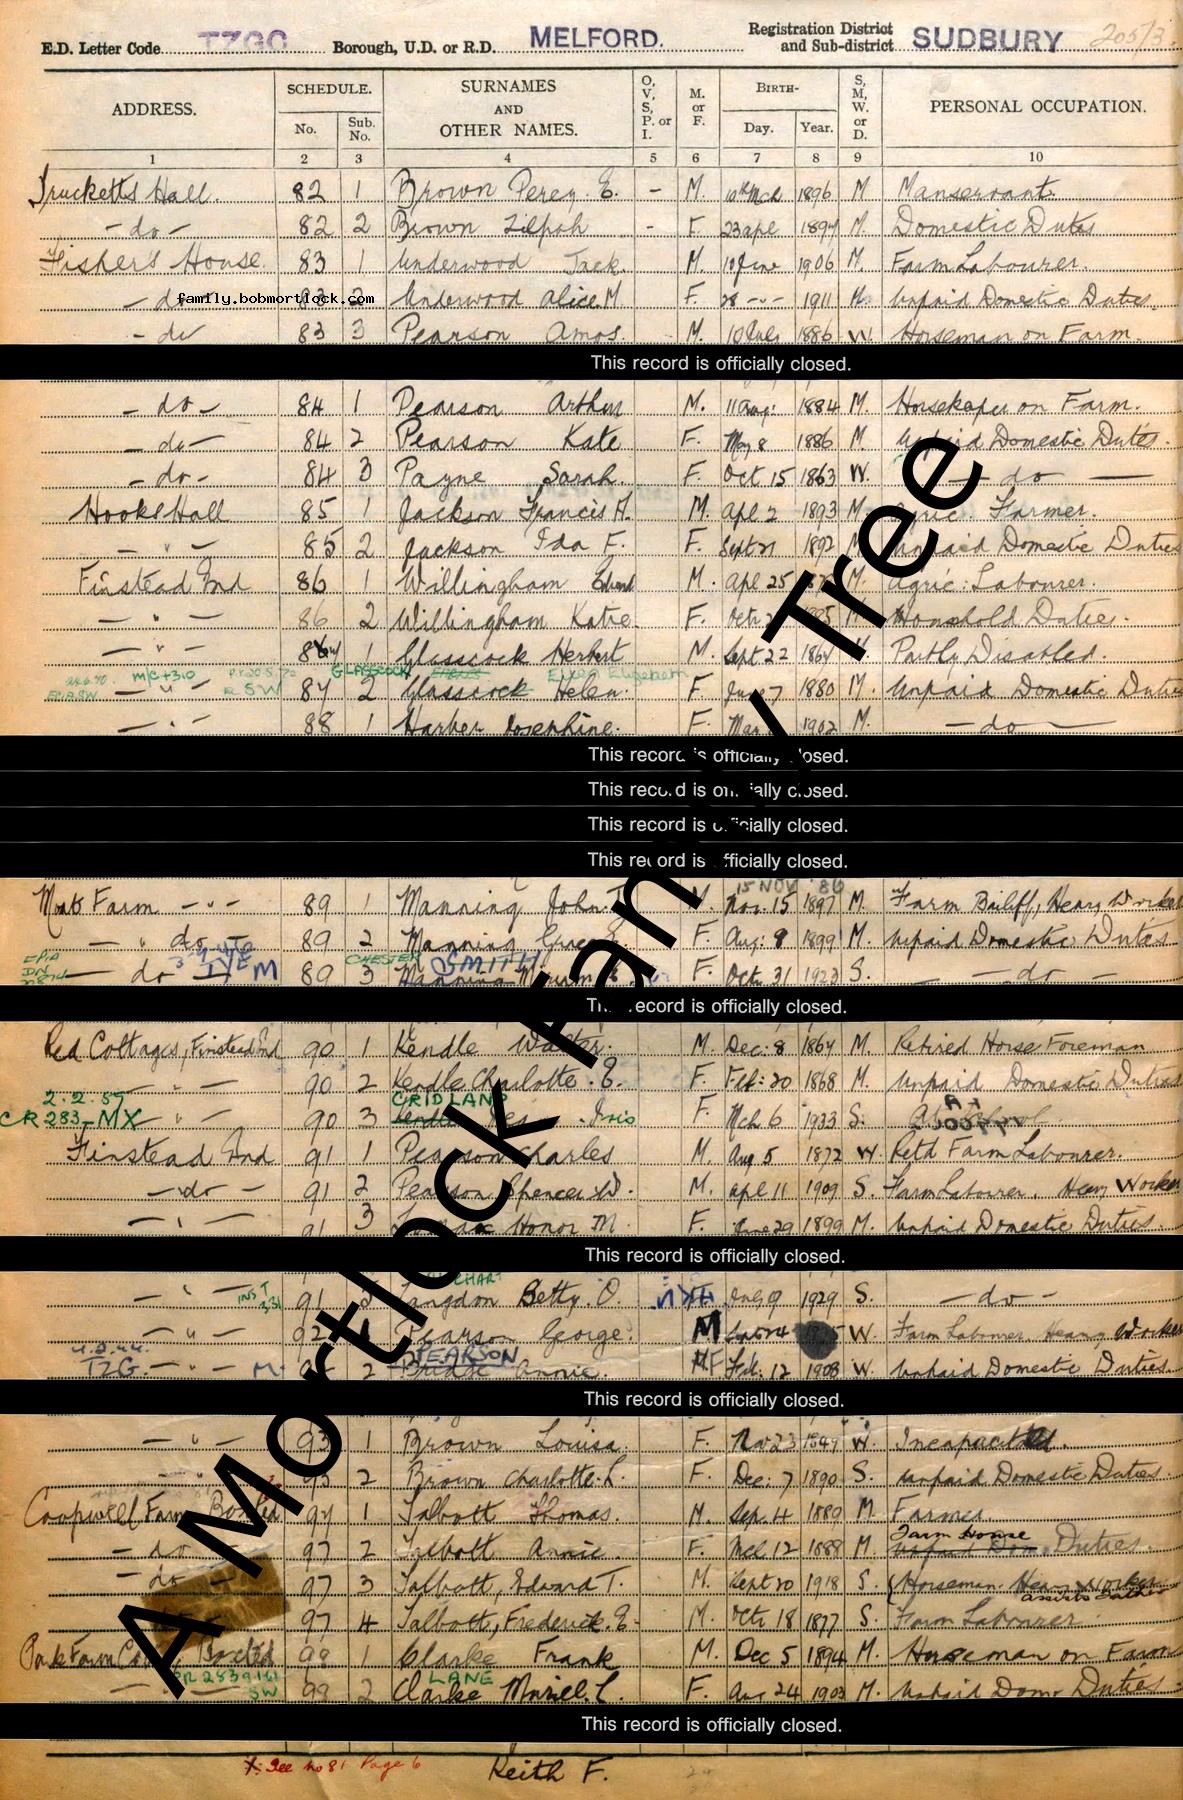 E.D. Letter Code TZGC Borough, U.D. or R.D. MELFORD. Registration District and Sub-district SUDBURY 205/3
ADDRESS. SCHEDULE. No. Sub. No. SURNAMES AND OTHER NAMES. O, V, S, P. or I. M. or F. BIRTH- Day. Year. S, M, W. or D. PERSONAL OCCUPATION.
1 2 3 4 5 6 7 8 9 10
Trucketts Hall. 82 1 Brown Percy E. - M. 10th Mch 1896 M Manservant.
- do - 82 2 Brown Zilpah - F. 23 apl 1897 M. Domestic Duties
Fishers House. 83 1 Underwood Jack. M. 10 June 1906 M. Farm Labourer.
- do 83 2 Underwood Alice M F. 28 -"- 1911 M. Unpaid Domestic Duties.
family.bobmortlock.com
- do 83 3 Pearson Amos. M. 10 July 1886 W. Horseman on Farm.
This record is officially closed.
- do - 84 1 Pearson Arthur M. 11 Aug: 1884 M. Horsekeper on Farm.
- do - 84 2 Pearson Kate F. May 8 1886 M. Unpaid Domestic Duties.
- do - 84 3 Payne Sarah. F. Oct 15 1863 W. - do -
Hooks Hall 85 1 Jackson Francis A. M. Apl 2 1893 M. Agric. Farmer.
- " - 85 2 Jackson Ida F. F. Sept 21 1892 M. Unpaid Domestic Duties
Finstead End 86 1 Willingham M. Apl 25 M. Agric: Labourer.
- " - 86 2 Willingham Katie. F. Oct: 2 M. Household Duties.
- " - 1 Glasscock Herbert M. Sept 22 1864 M. Partly Disabled.
m/c+310 GLASSCOCK Ellen Elizabeth
- " - 87 2 Glasscock Helen. F. 7 1880 M. Unpaid Domestic Duties
- " - 88 1 Harber Josephine. F. Mar 1902 M. - do -
This record is officially closed.
This record is officially closed.
This record is officially closed.
This record is officially closed.
15 NOV 86
Moat Farm - " - 89 1 Manning John. T. M. Nov. 15 1897 M. Farm Bailiff, Heavy Worker
- " do - 89 2 Manning Grace F. Aug: 8 1899 M. Unpaid Domestic Duties
CHESTER SMITH
- do - M 89 3 Manning F. Oct. 31 1923 S. - do -
This record is officially closed.
Red Cottages, Finstead End 90 1 Kendle Walter. M. Dec. 8 1864 M. Retired Horse Foreman
- " - 90 2 Kendle Charlotte. E. F. Feb: 20 1868 M. Unpaid Domestic Duties
2.2.57 CRIDLAND
CR 283-MX - " - 90 3 Kendle Iris F. Mch 6 1933 S. At School.
Finstead End 91 1 Pearson Charles M. Aug 5 1872 W. Retd Farm Labourer.
- do - 91 2 Pearson Spencer W. M. Apl 11 1909 S. Farm Labourer. Heavy Worker
- " - 91 3 Honor M. F. June 29 1899 M. Unpaid Domestic Duties.
This record is officially closed.
- " - 91 Langdon Betty O. F. July 9 1929 S. - do -
- " - 92 1 Pearson George. M W. Farm Labourer Heavy Worker
PEARSON
TZG. - " - M. 92 2 Annie. F Feb: 12 1908 W. Unpaid Domestic Duties.
This record is officially closed.
- " - 93 1 Brown Louisa. F. Nov 23 1849 W. Incapacitated.
- " - 93 2 Brown Charlotte. L. F. Dec: 7 1890 S. Unpaid Domestic Duties.
Coopwell Farm Boxted 97 1 Talbott Thomas. M. Sep. 4 1880 M Farmer
- do - 97 2 Talbott Annie. F. Mch 12 1888 M. Farm House Unpaid Dom. Duties.
- do - 97 3 Talbott, Edward T. M. Sept 20 1918 S. Horseman. Heavy Worker assists Father
97 4 Talbott, Frederick. E- M. Oct: 18 1877 S. Farm Labourer.
Park Farm Boxted 98 1 Clarke Frank M. Dec 5 1894 M. Horseman on Farm
LANE
98 2 Clarke Muriel. L. F. Aug 24 1903 M. Unpaid Dom. Duties.
This record is officially closed.
X: See no 81 Page 6 Keith F.
A Mortlock Family Tree